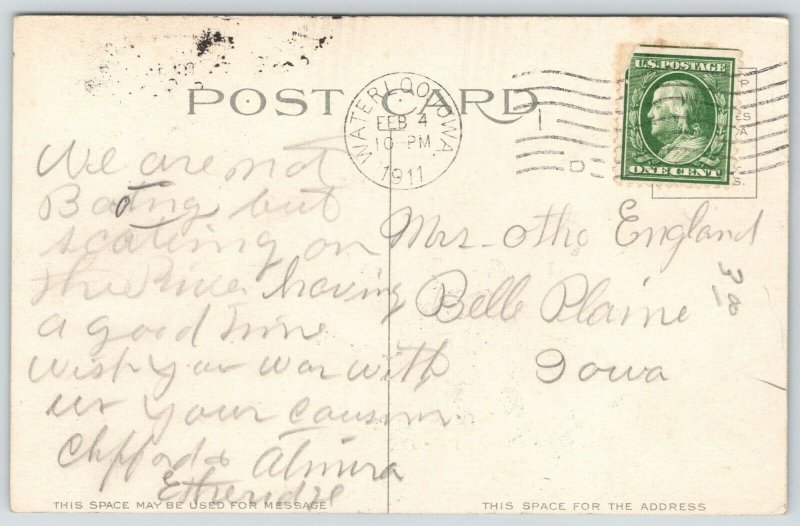 POST CARD
WATERLOO, IOWA
FEB 4
10-PM
1911
U.S. POSTAGE
ONE CENT
We are not
Bating but
scateing on
the River having
a good time
wish you war with
us your Cousins
Clifford & Almira
Etheridge
Mrs - Otho England
Belle Plaine
Iowa
D
THIS SPACE MAY BE USED FOR MESSAGE
THIS SPACE FOR THE ADDRESS